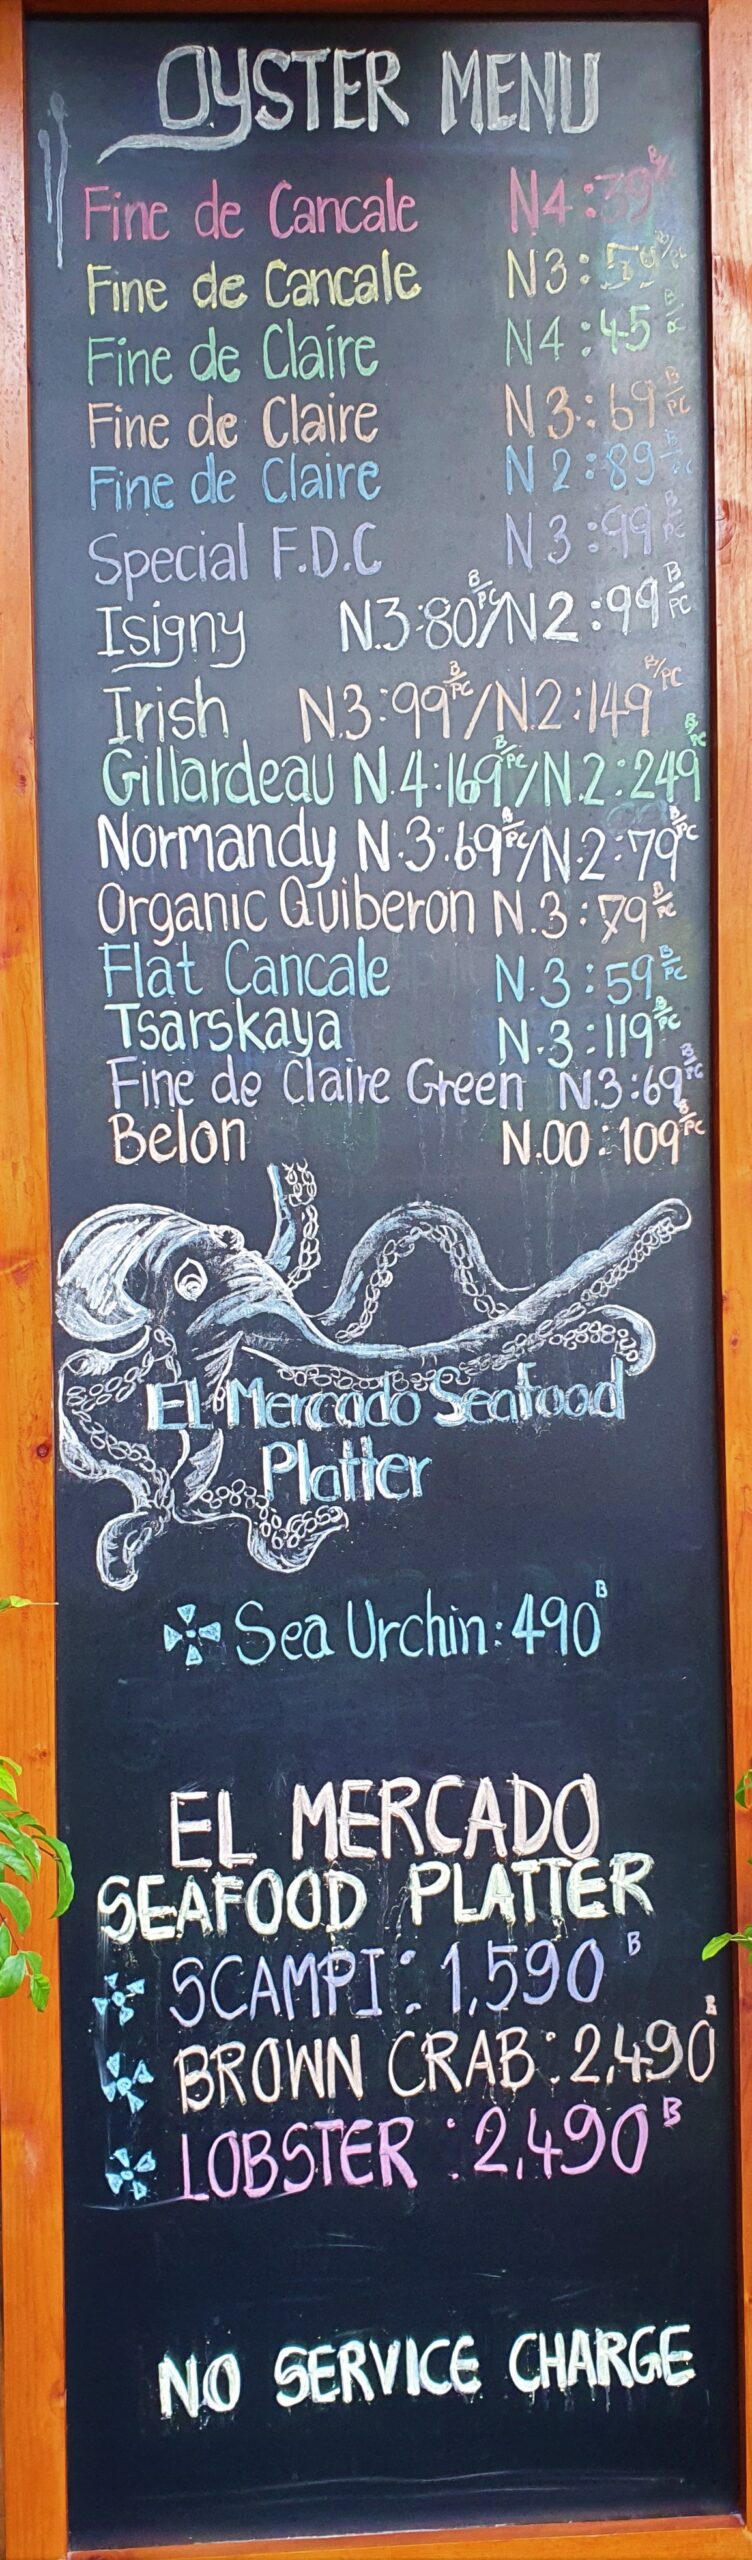 OYSTER MENU
Fine de Cancale N4:39 B/
Fine de Cancale N3:59 B/PC
Fine de Claire N4:45 B/
Fine de Claire N3:69 B/PC
Fine de Claire N2:89 B/
Special F.D.C N3:99 B/PC
Isigny N.3:80 B/PC/N2:99 B/PC
Irish N.3:99 B/PC/N.2:149 B/PC
Gillardeau N.4:169 B/PC/N.2:249 B/PC
Normandy N.3:69 B/PC/N.2:79 B/PC
Organic Quiberon N.3:79 B/PC
Flat Cancale N.3:59 B/PC
Tsarskaya N.3:119 B/PC
Fine de Claire Green N.3:69 B/PC
Belon N.00:109 B/PC
EL Mercado Seafood
Platter
Sea Urchin:490 B
EL MERCADO
SEAFOOD PLATTER
SCAMPI:1,590 B
BROWN CRAB:2,490 B
LOBSTER:2,490 B
NO SERVICE CHARGE